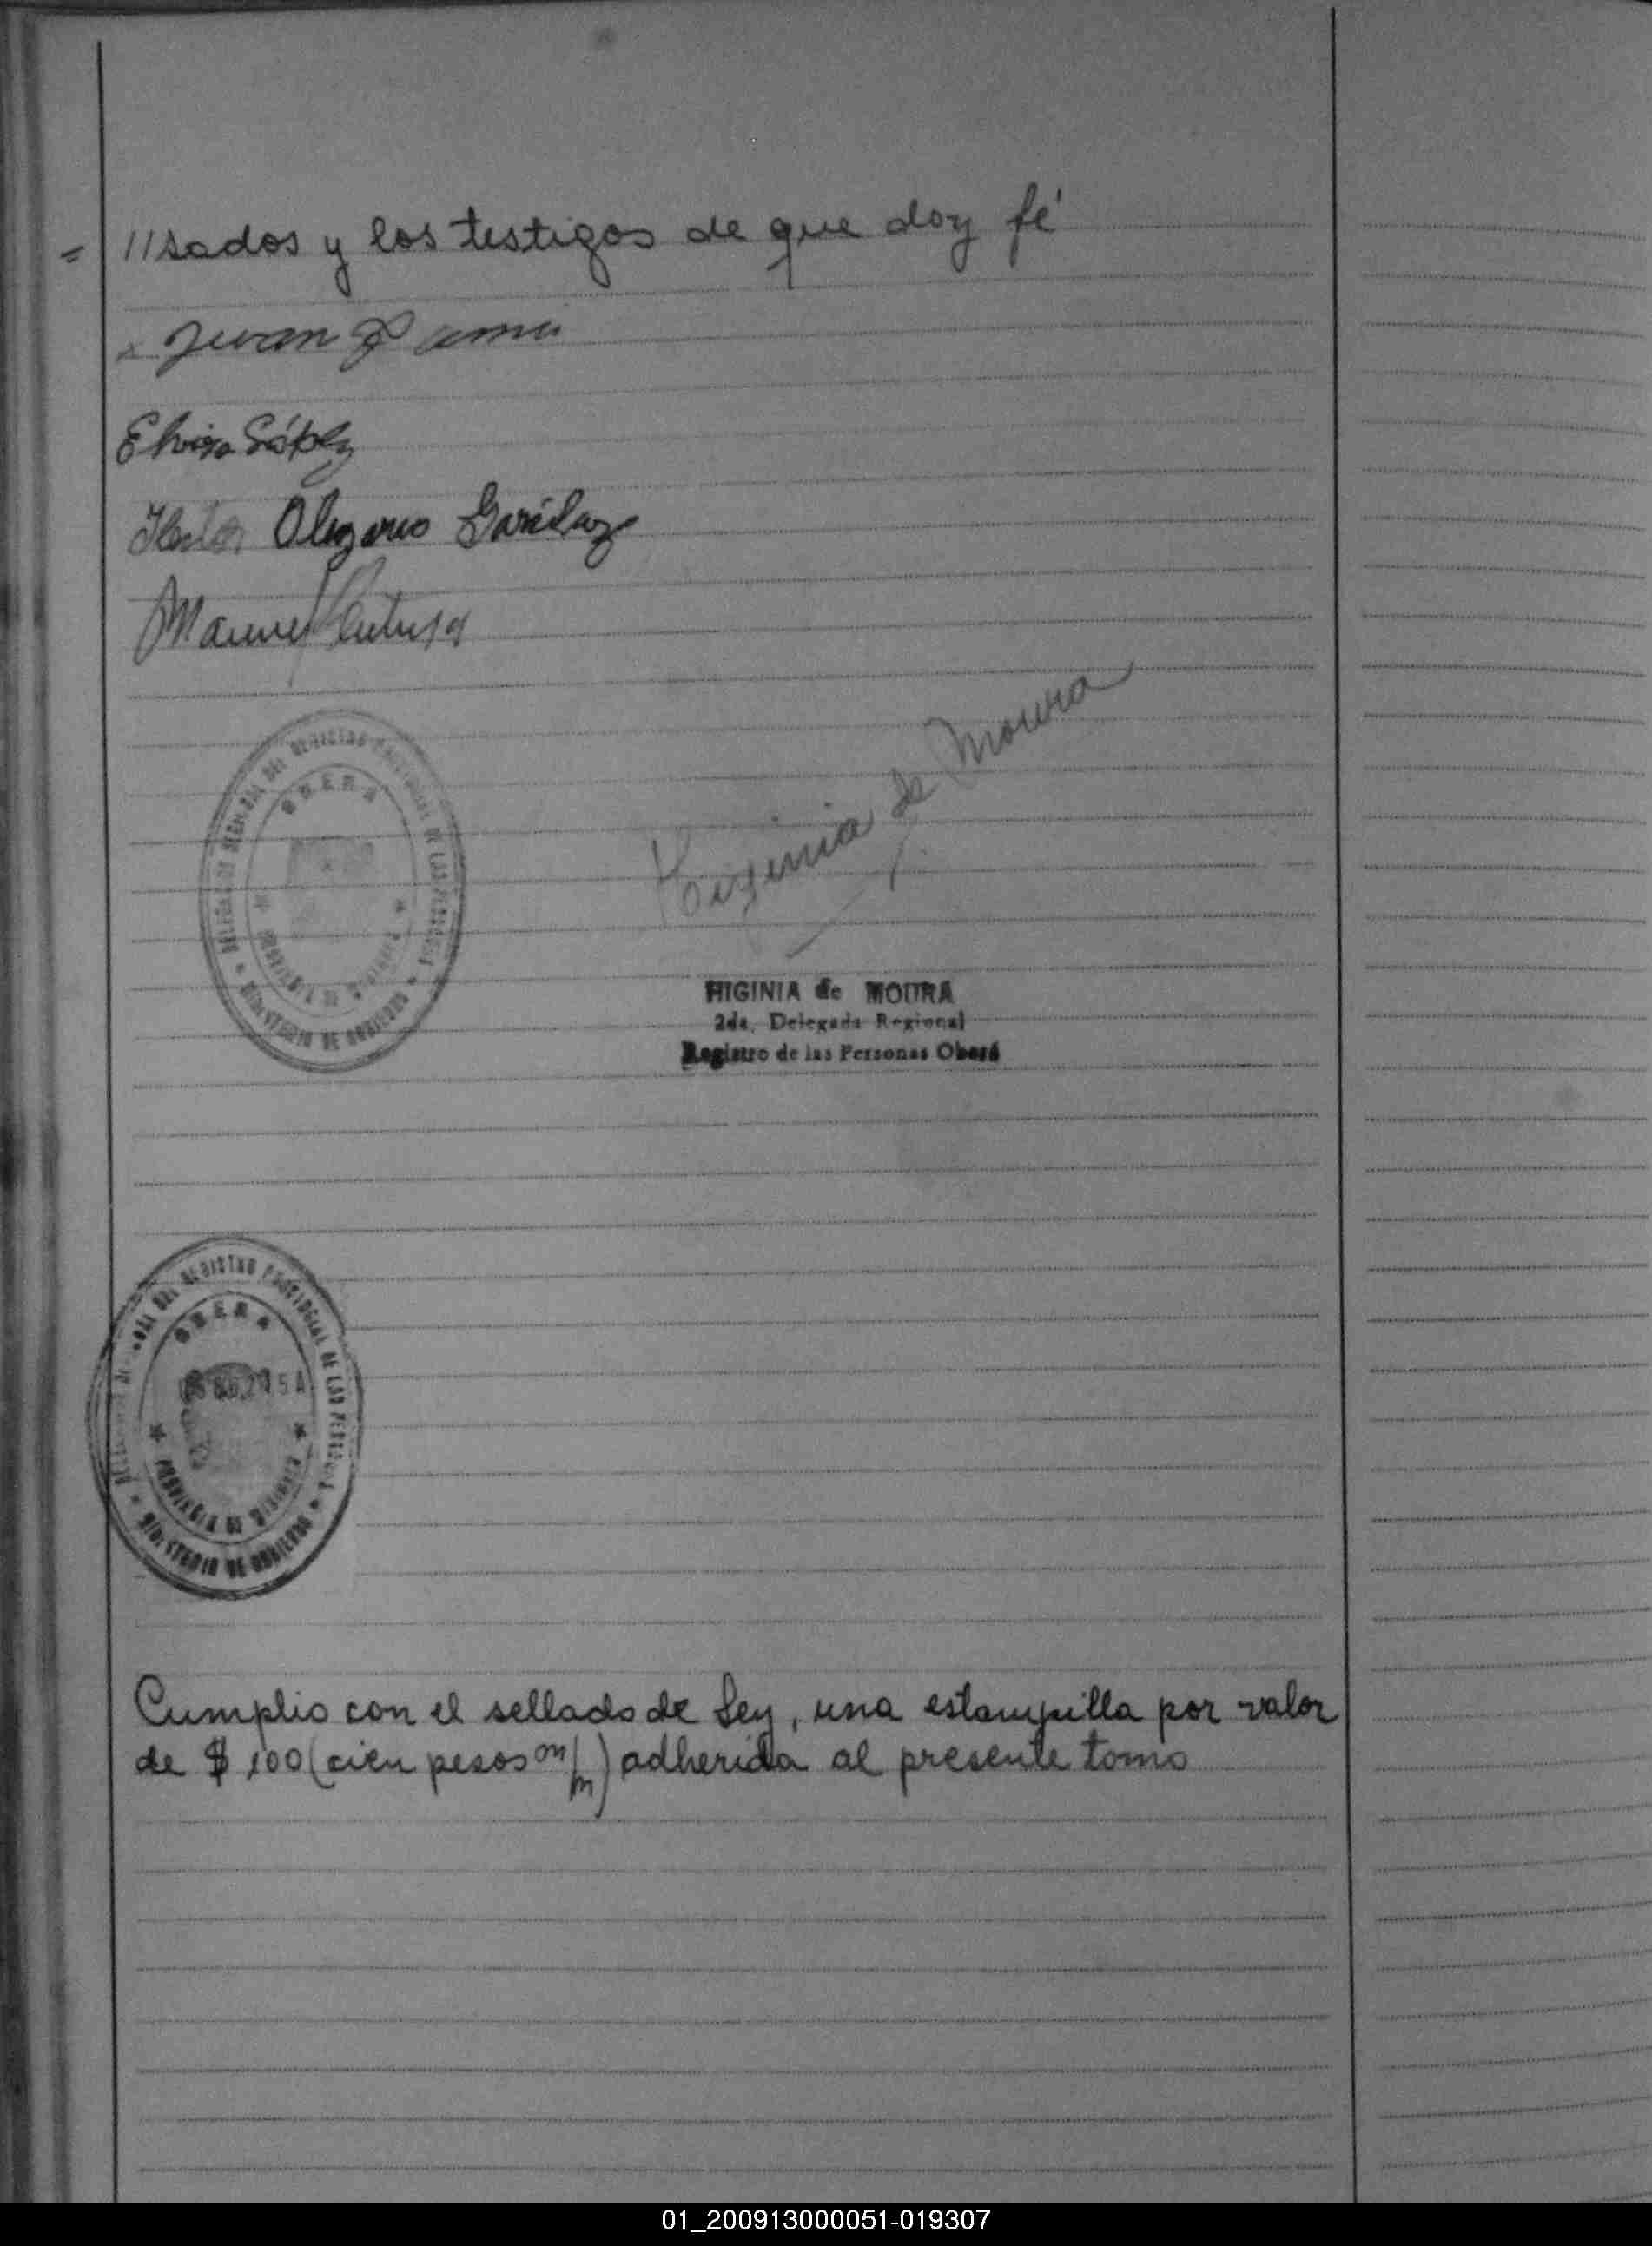 = //sados y los testigos de que doy fé
x Juan
Elvira López
Olegario
Manuel
DELEGACION REGIONAL DEL REGISTRO PROVINCIAL DE LAS PERSONAS
OBERA
PROVINCIA DE MISIONES
* MINISTERIO DE GOBIERNO *
Higinia de Moura
HIGINIA de MOURA
2da. Delegada Regional
Registro de las Personas Oberá
DELEGACION REGIONAL DEL REGISTRO PROVINCIAL DE LAS PERSONAS
OBERA
* PROVINCIA DE MISIONES *
* MINISTERIO DE GOBIERNO *
Cumplio con el sellado de Ley, una estampilla por valor
de $ 100 (cien pesos m/m) adherida al presente tomo
01_200913000051-019307